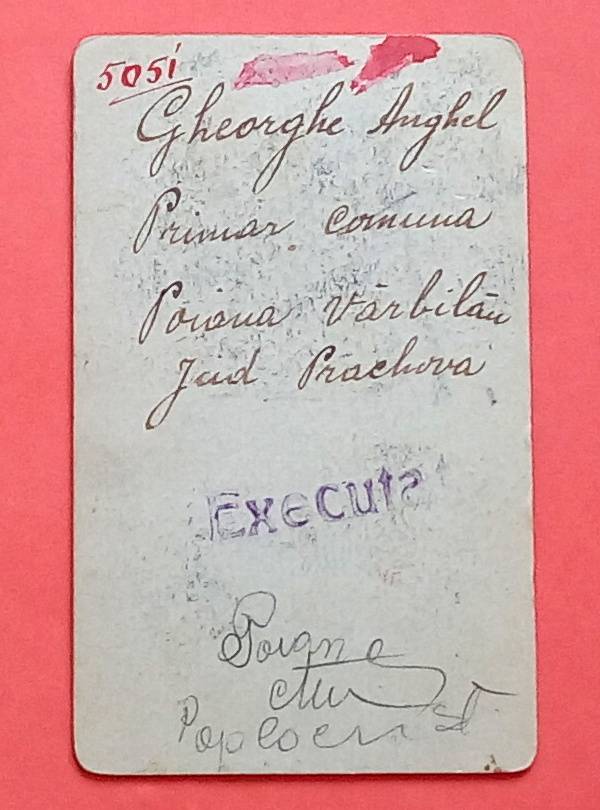 5051
Gheorghe Anghel
Primar comuna
Poiana Vărbilău
Jud Prachova
Executa
Poiana